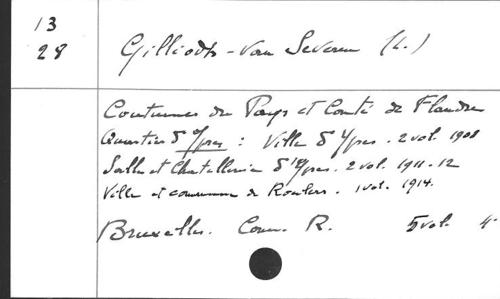 13
28
Gilliodts-van Severen (L.)
Coutumes du Pays et Comté de Flandre
Quartier d'Ypres : Ville d'Ypres. 2 vol. 1908
Salle et Chatellenie d'Ypres. 2 vol. 1911-12
Ville et commune de Roulers. 1 vol. 1914.
Bruxelles. Com. R. 5 vol 4°